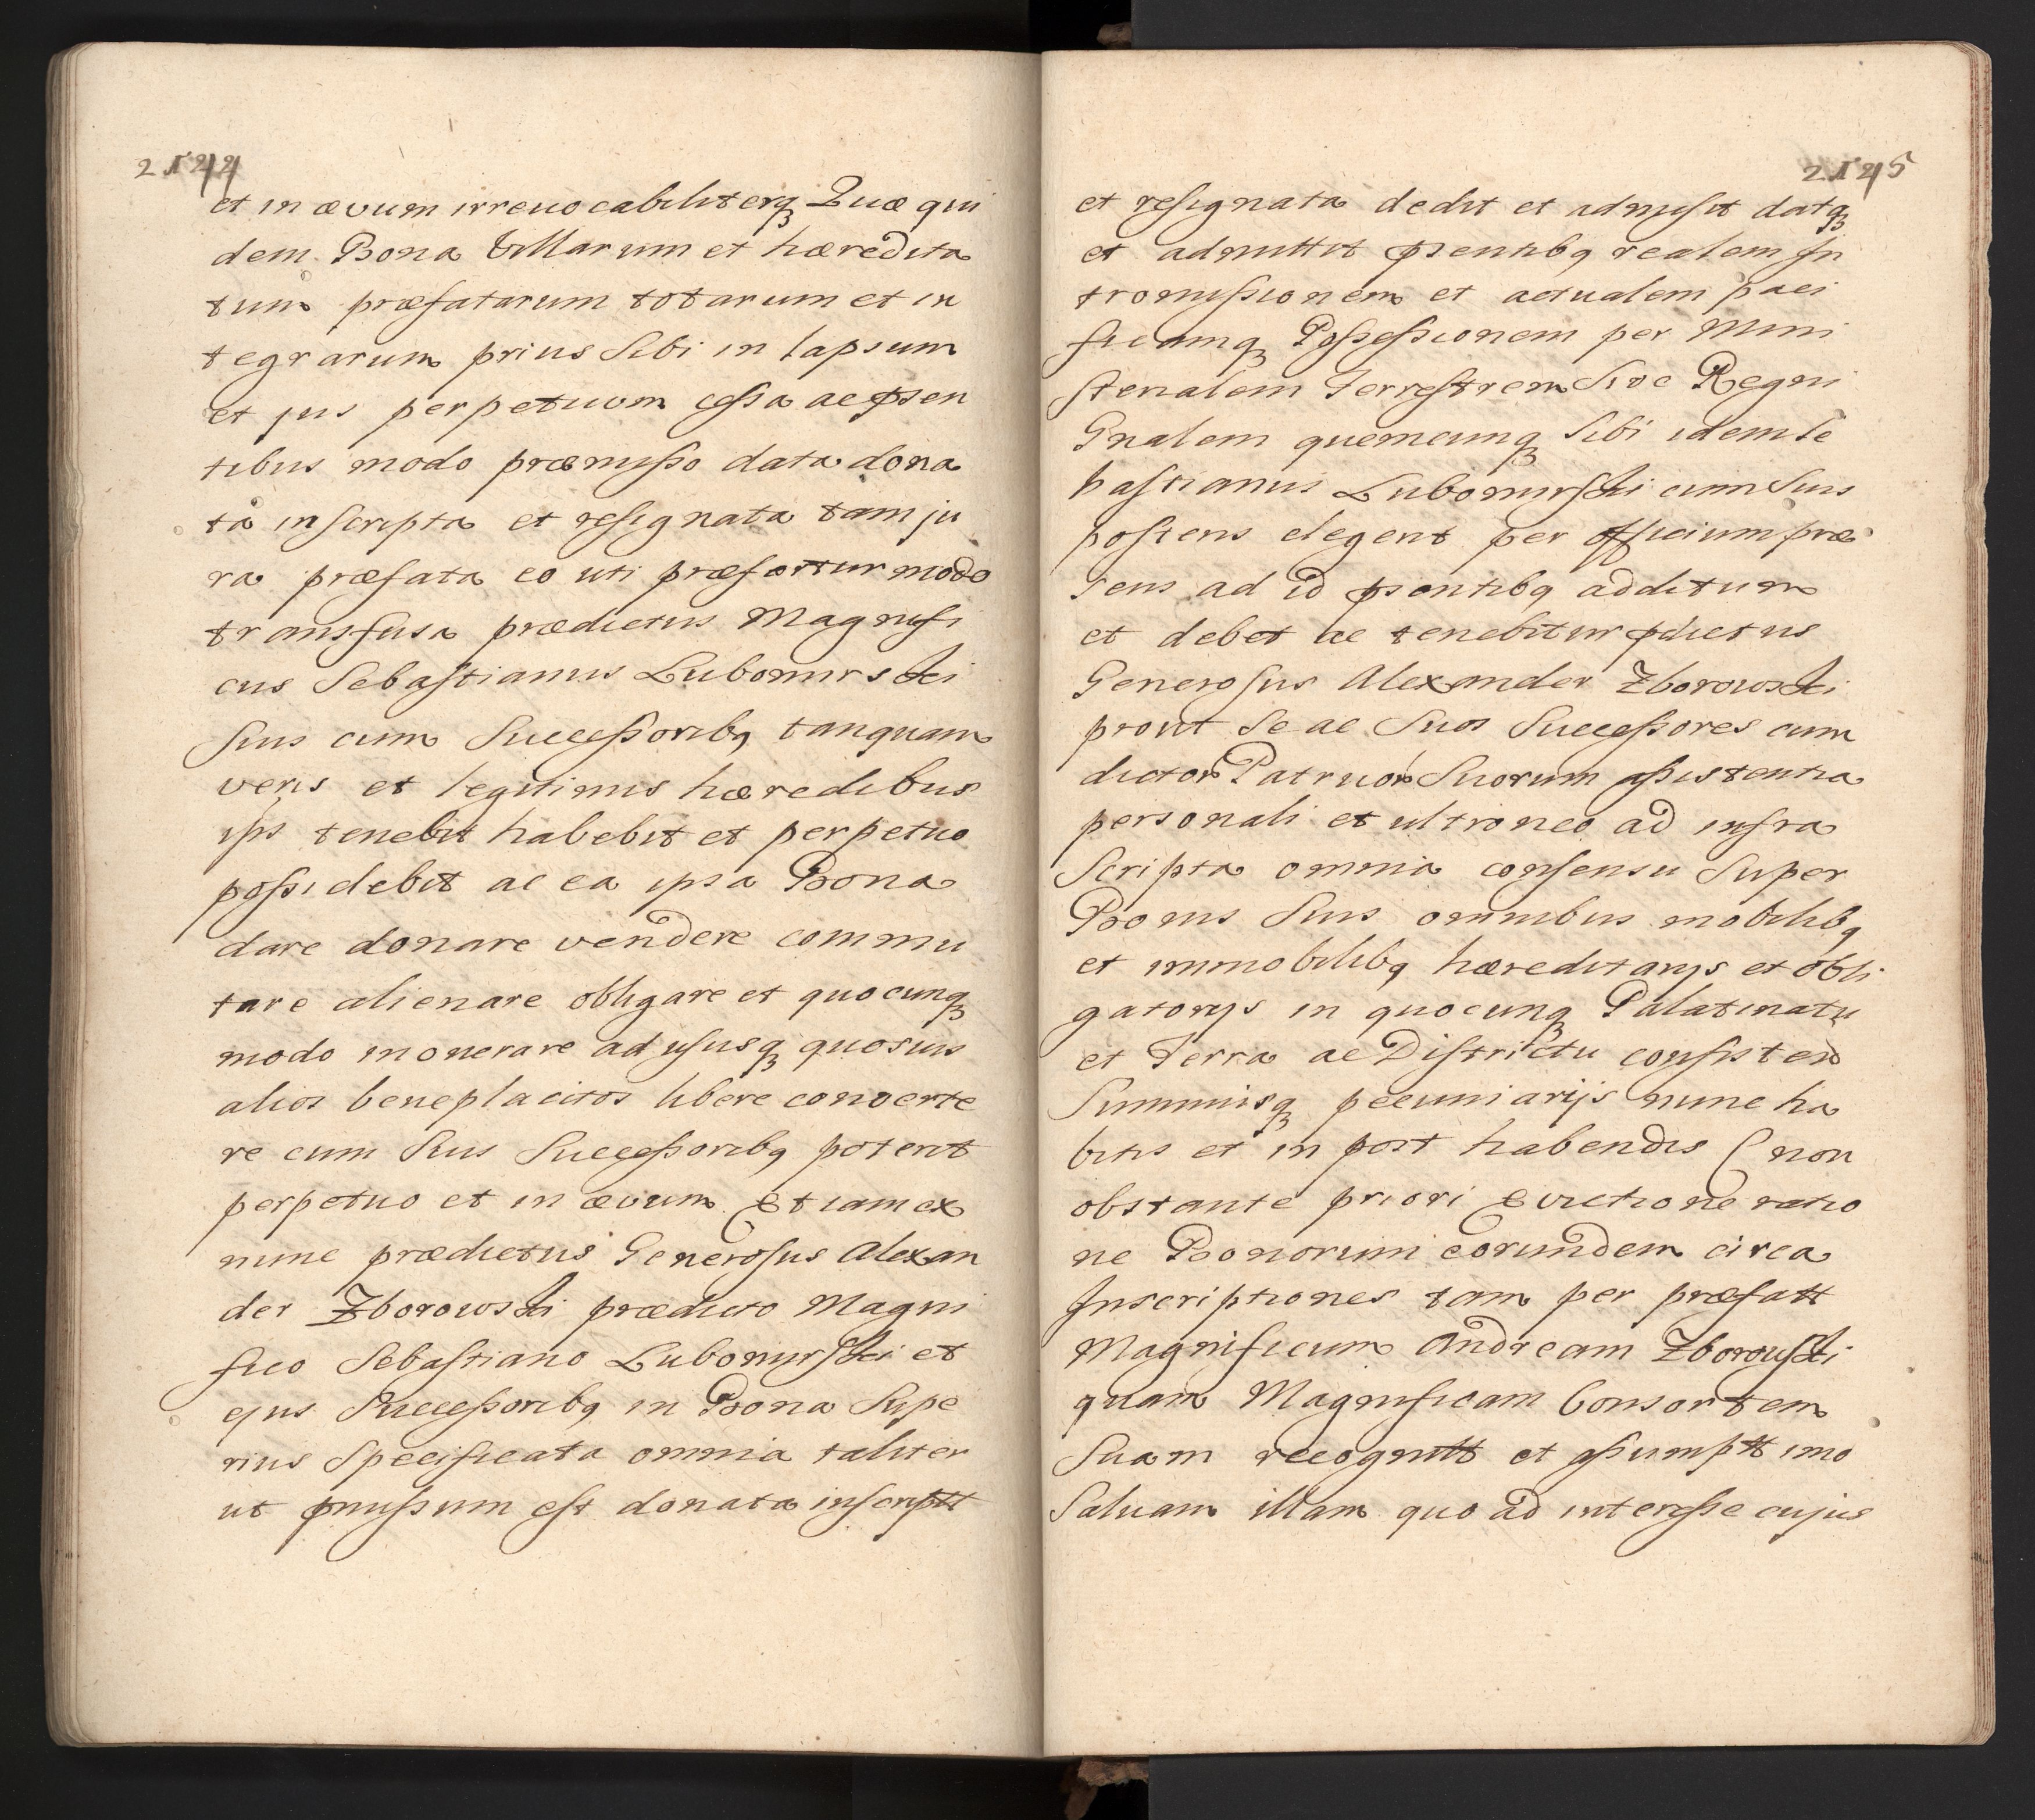 et in ævum irreuocabiliterq₃ Quæ qui
dem Bona Villarum et hæredita
tum præfatarum totarum et in
tegrarum prius Sibi in lapsum
et jus perpetuum cessa ac psen
tibus modo præmisso data dona
ta inscripta et resignata tam ju
ra præfata eo uti præfertur modo
transfusa prædictus Magnifi
cus Sebastianus Lubomirski
suis cum Successorib9 tanquam
veris et legitimis hæredibus
ips tenebit habebit et perpetuo
possidebit ac ea ipsa Bona
dare donare vendere commu
tare alienare obligare et quocunq₃
modo inonerare ad ususq₃ quosuis
alios beneplacitos libere conuerte
re cum Suis Successorib9 poterit
perpetuo et in ævum Et iam ex
nunc prædictus Generosus Alexan
der Zborowski prædicto Magni
fico Sebastiano Lubomirski et
ejus Successorib9 in Bona Supe
rius Specificata omnia taliter
ut pmissum est donata inscriptt
et resignata dedit et admisit datq₃
et admittit psentib9 realem In
tromissionem et actualem paci
ficamq₃ Possessionem per Mini
sterialem Terrestrem Sive Regni
Gnalem quemcunq₃ Sibi idem Se
bastianus Lubomirski cum Suis
posteris elegerit per Officium præ
sens ad id psentib9 additum
et debet ac tenebitur pdictus
Generosus Alexander Zborowski
prout Se ac Suos Successores cum
dictor Patruor Suorum assistentia
personali et ultroneo ad infra
Scripta omnia consensu Super
Bonis Suis omnibus mobilib9
et immobilib9 hæreditarijs et obli
gatorijs in quocunq₃ Palatinatu
et Terra ac Districtu consisten
Summisq₃ pecuniarijs nunc ha
bitis et in post habendis (non
obstante priori Evictione ratio
ne Bonorum eorundem circa
Inscriptiones tam per præfatt
Magnificum Andream Zborouski
quam Magnificam Consortem
Suam recognitt et assumptt imo
Saluam illam quo ad interesse cujus